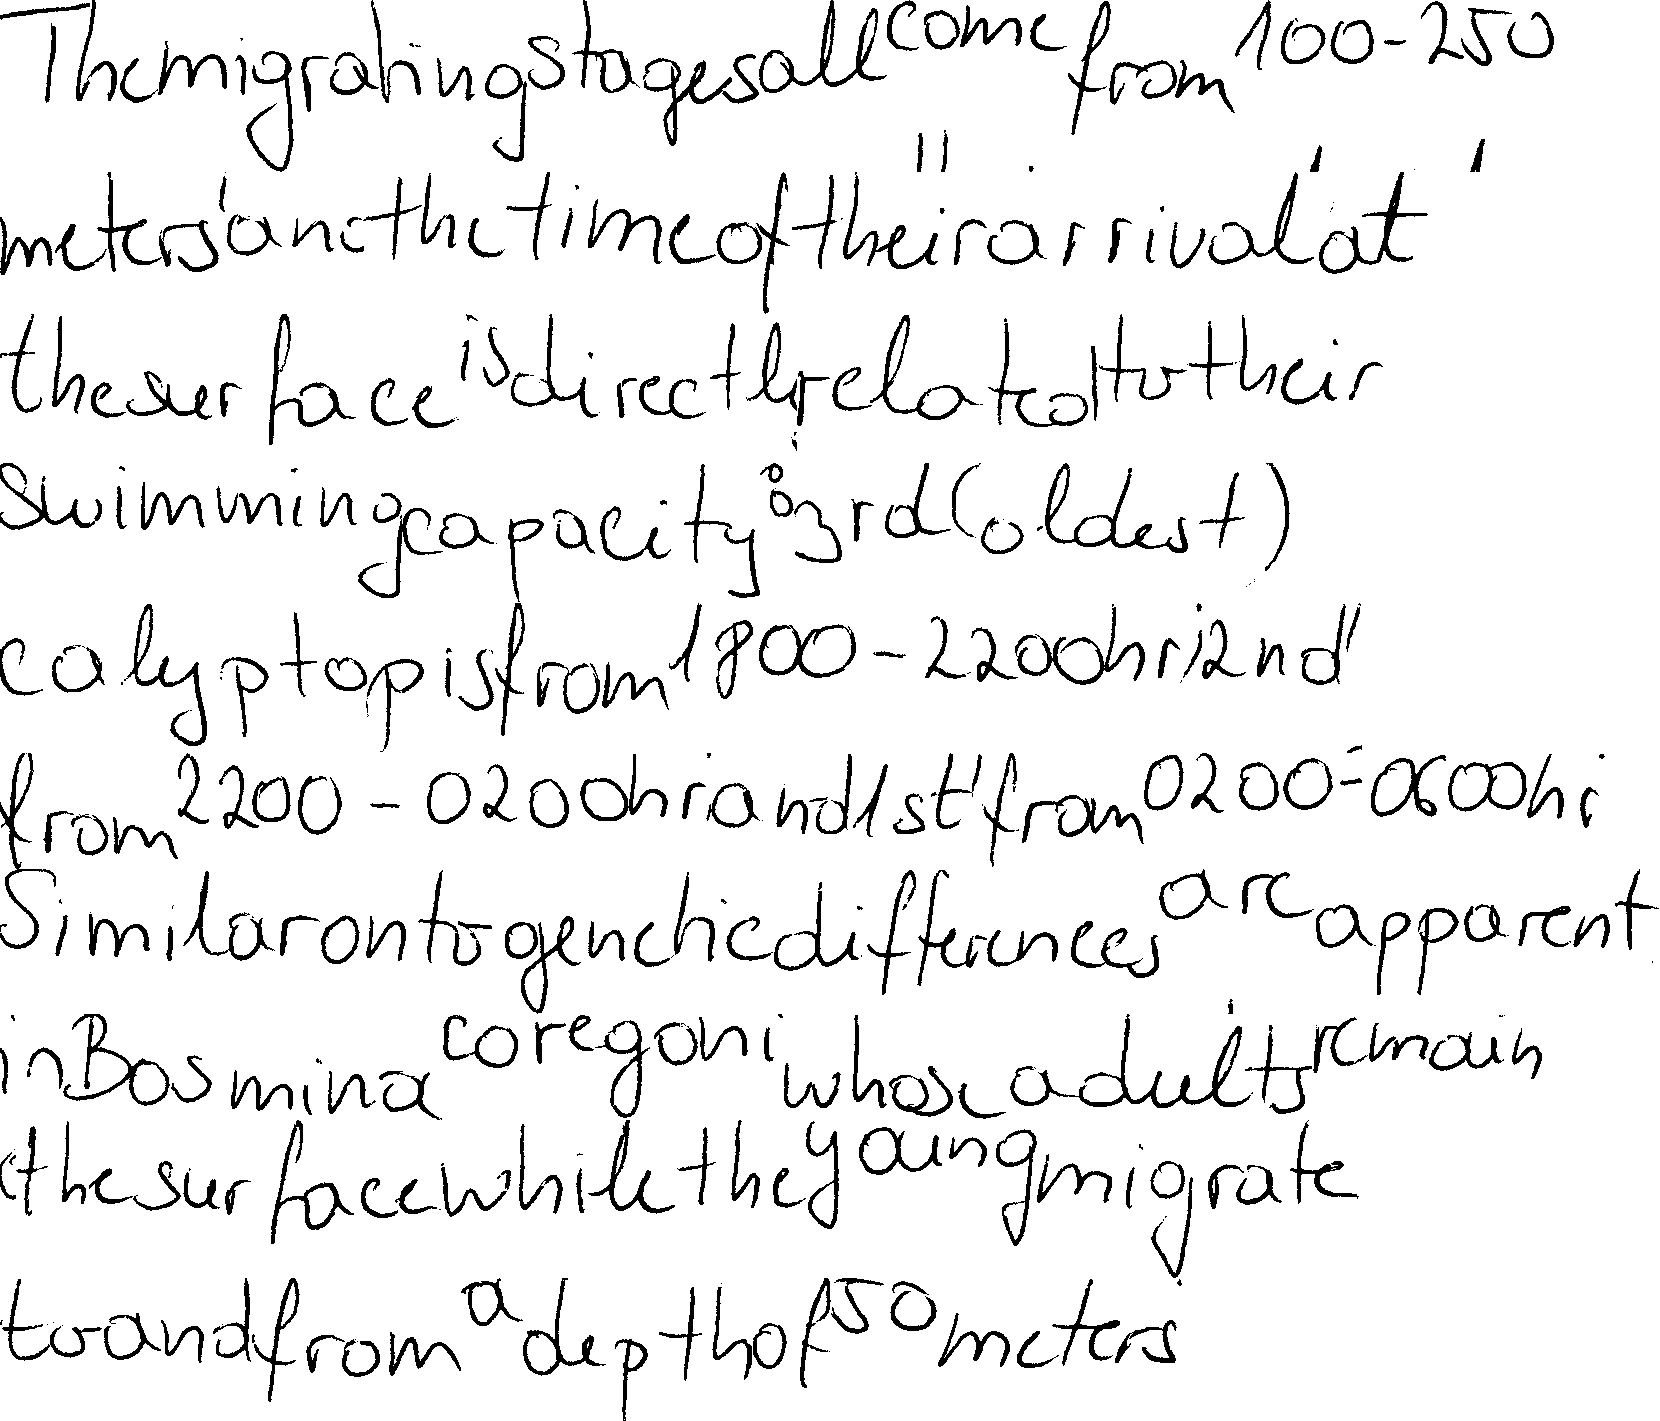 The migrating stages all come from 100-250
meters' anc the time of their arrival 'at '
the surface is directly related to their
swimming capacity: 3rd (oldest)
calyptopis from 1800-2200 hr; 2nd "
from 2200-0200 hr; and 1st " from 0200-0600 hr
Similar ontogenetic differences are apparent
in Bosmina coregoni whose adults remain
the surface while the young migrate
to and from a depth of 50 meters